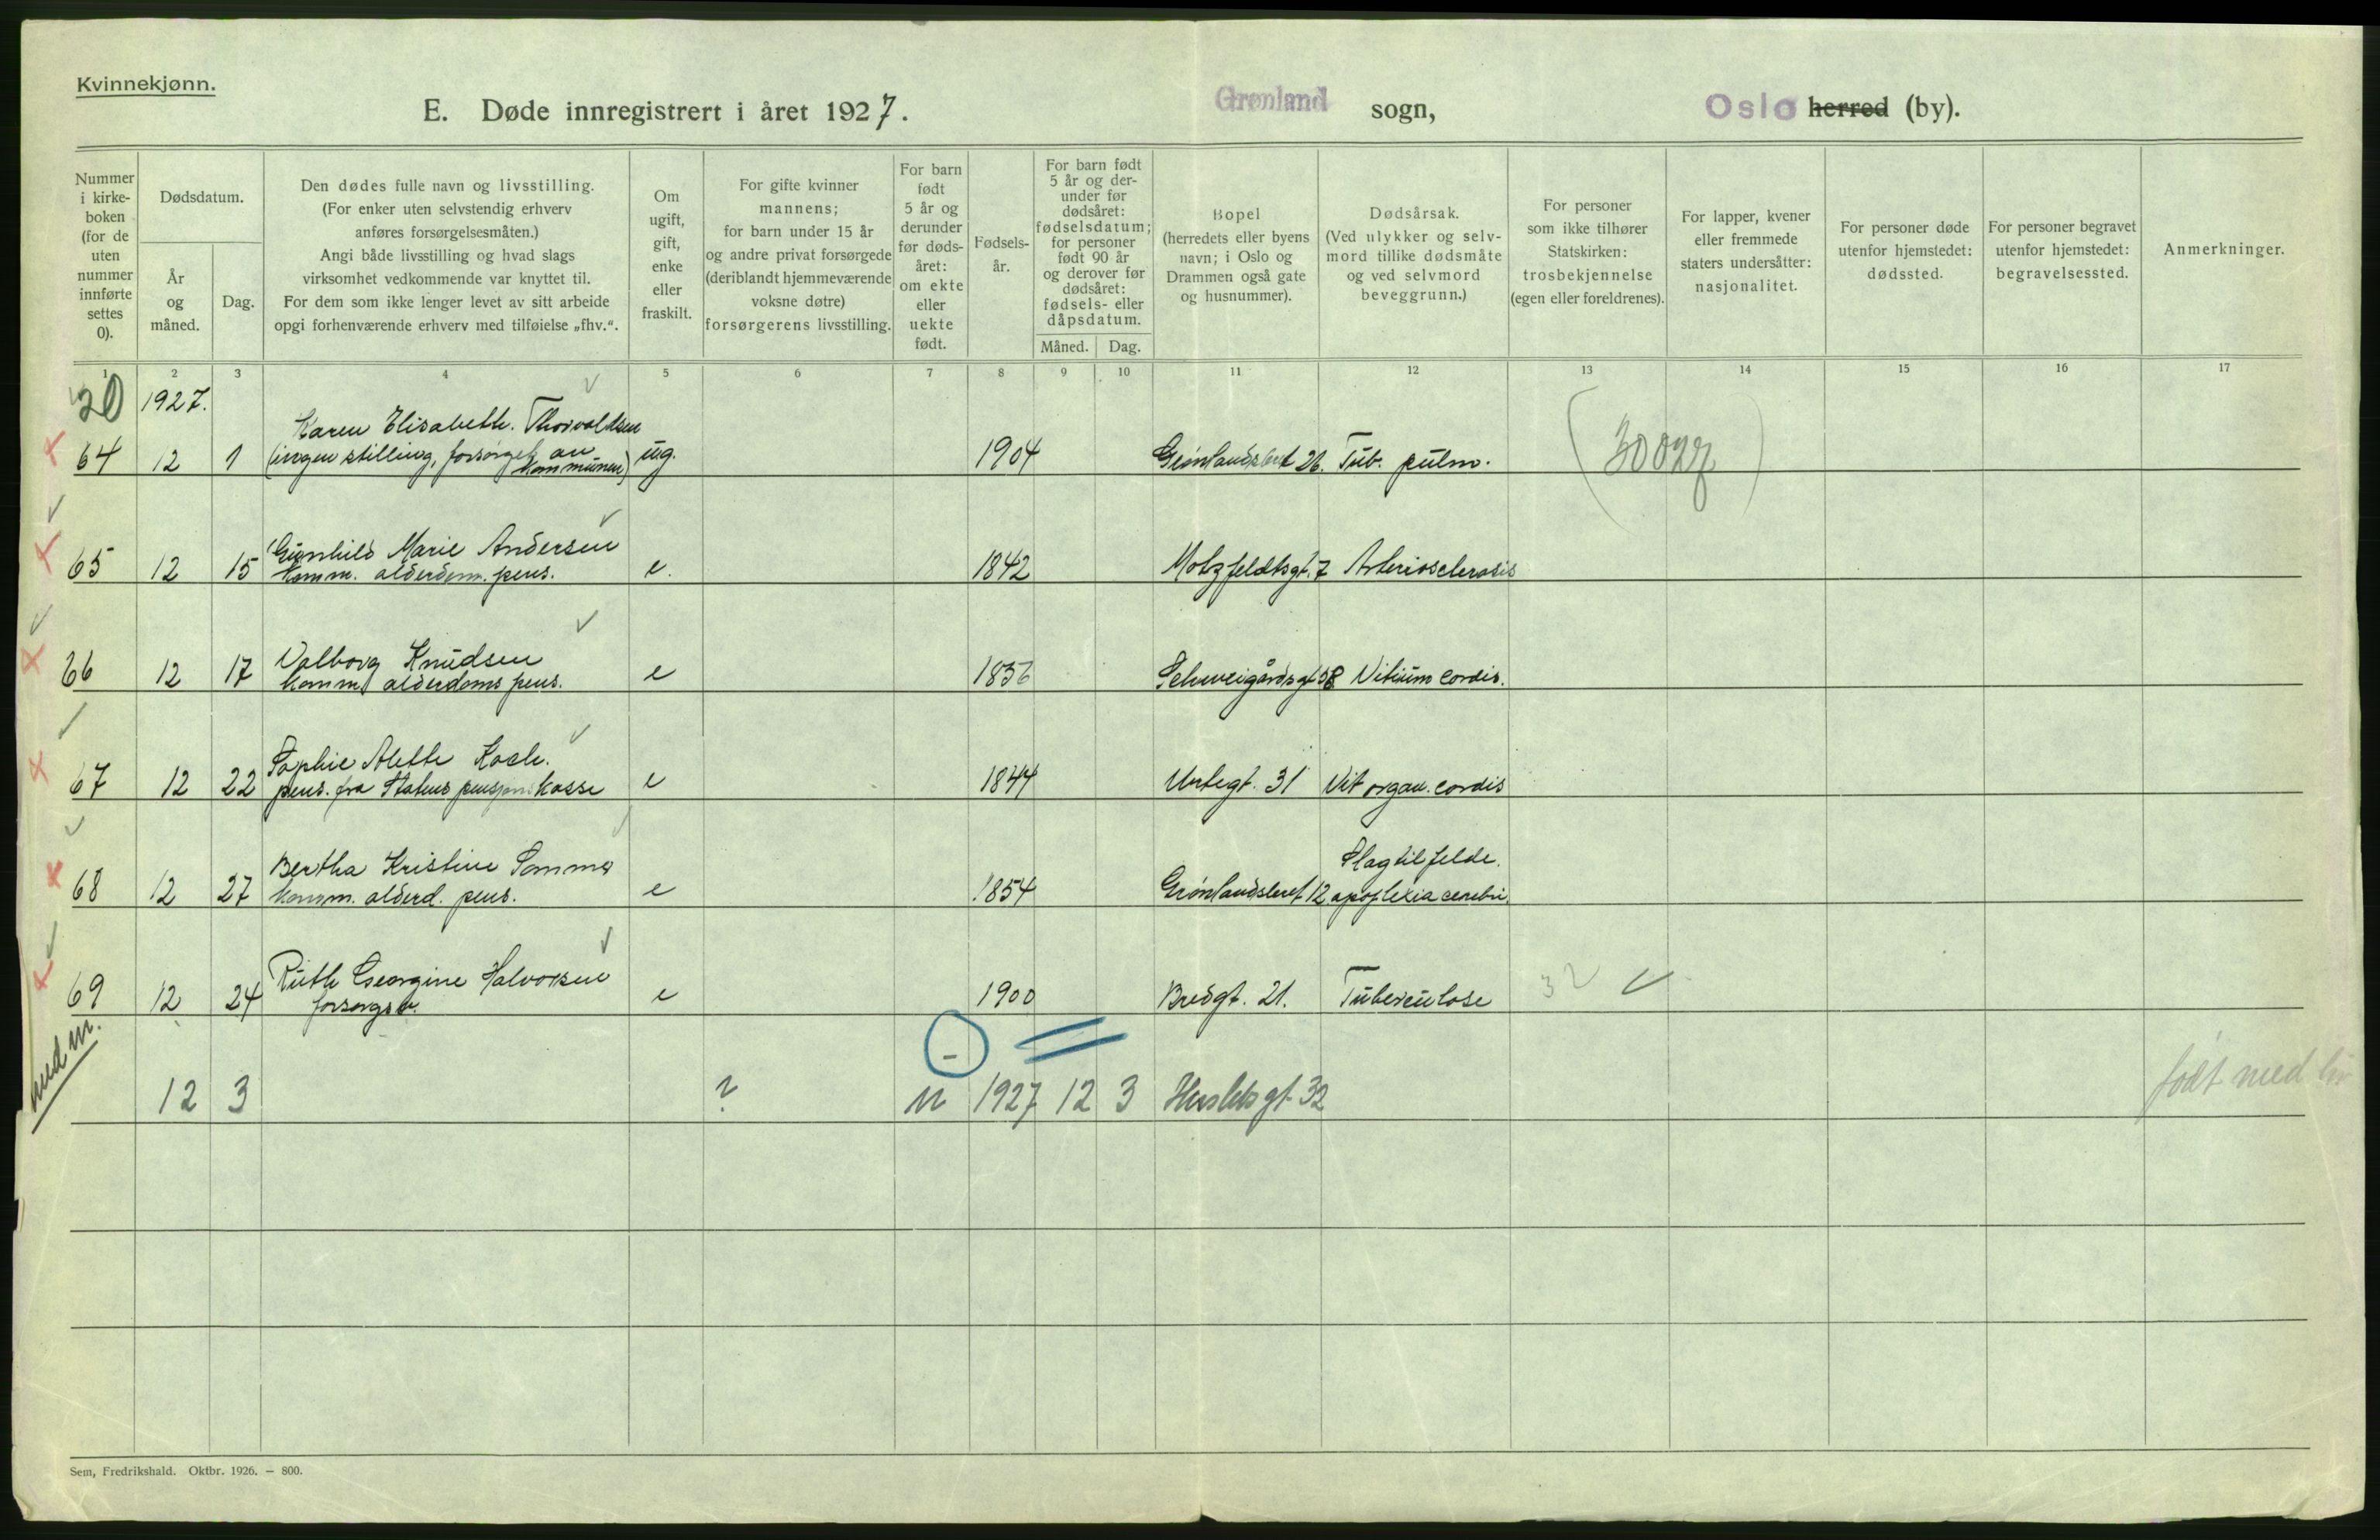 Kvinnekjønn.
E. Døde innregistrert i året 1927.
Grønland sogn,
Oslo herred (by).
Nummer i kirke-
boken
(for de
uten
nummer
innførte
settes
0).
Dødsdatum.
År
og
måned.
Dag.
Den dødes fulle navn og livsstilling.
(For enker uten selvstendig erhverv
anføres forsørgelsesmåten.)
Angi både livsstilling og hvad slags
virksomhet vedkommende var knyttet til.
For dem som ikke lenger levet av sitt arbeide
opgi forhenværende erhverv med tilføielse „fhv.“.
Om
ugift,
gift,
enke
eller
fraskilt.
For gifte kvinner
mannens;
for barn under 15 år
og andre privat forsørgede
(deriblandt hjemmeværende
voksne døtre)
forsørgerens livsstilling.
For barn
født
5 år og
derunder
før døds-
året:
om ekte
eller
uekte
født.
Fødsels-
år.
For barn født
5 år og der-
under før
dødsåret:
fødselsdatum;
for personer
født 90 år
og derover før
dødsåret:
fødsels- eller
dåpsdatum.
Måned. Dag.
Bopel
(herredets eller byens
navn; i Oslo og
Drammen også gate
og husnummer).
Dødsårsak.
(Ved ulykker og selv-
mord tillike dødsmåte
og ved selvmord
beveggrunn.)
For personer
som ikke tilhører
Statskirken:
trosbekjennelse
(egen eller foreldrenes).
For lapper, kvener
eller fremmede
staters undersåtter:
nasjonalitet.
For personer døde
utenfor hjemstedet:
dødssted.
For personer begravet
utenfor hjemstedet:
begravelsessted.
Anmerkninger.
1 2 3 4 5 6 7 8 9 10 11 12 13 14 15 16 17
20 1927.
Karen Elisabeth. Thorvaldsen
64 12 1 (ingen stilling, forsørget av kommunen) ug. 1904 Grønlandsleret 26. Tub. pulm.
Gunhild Marie Andersen
65 12 15 komm. alderdom. pens. e. 1842 Motzfeldtsgt. 7 Arteriosclerosis
Valborg Knudsen
66 12 17 komm alderdoms pens. e 1836 Schweigårdsgt 58 Vitium cordis.
Sophie Alette Koch.
67 12 22 pens. fra Statens pensjonskasse e 1844 Urtegt. 31 Vit organ. cordis
Bertha Kristine Sommer Slagtilfelde.
68 12 27 komm. alderd. pens. e 1854 Grønlandsleret 12 apoplexia cerebri.
Ruth Georgine Halvorsen
69 12 24 forsørgs v. e 1900 Bredgt. 21. Tuberculose 32
med m.
12 3 ? u 1927 12 3 Herslebsgt 32 født med liv
Sem, Fredrikshald. Oktbr. 1926. – 800.